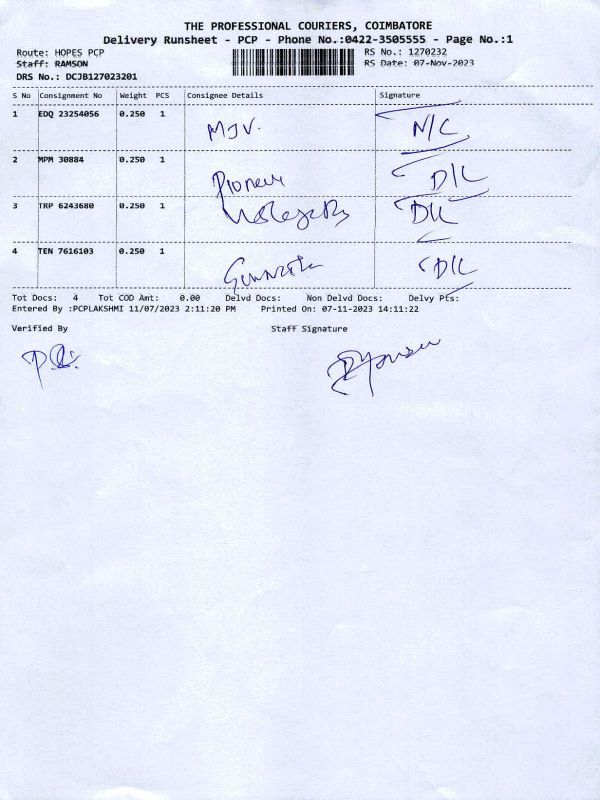 THE PROFESSIONAL COURIERS, COIMBATORE
Delivery Runsheet - PCP - Phone No.:0422-3505555 - Page No.:1
Route: HOPES PCP RS No.: 1270232
Staff: RAMSON RS Date: 07-Nov-2023
DRS No.: DCJB127023201
S No Consignment No Weight PCS Consignee Details Signature
1 EDQ 23254056 0.250 1 MJV. N/C
2 MPM 30884 0.250 1 Pioneer D/L
3 TRP 6243680 0.250 1 D/L
4 TEN 7616103 0.250 1 D/L
Tot Docs: 4 Tot COD Amt: 0.00 Delvd Docs: Non Delvd Docs: Delvy Pts:
Entered By :PCPLAKSHMI 11/07/2023 2:11:20 PM Printed On: 07-11-2023 14:11:22
Verified By Staff Signature